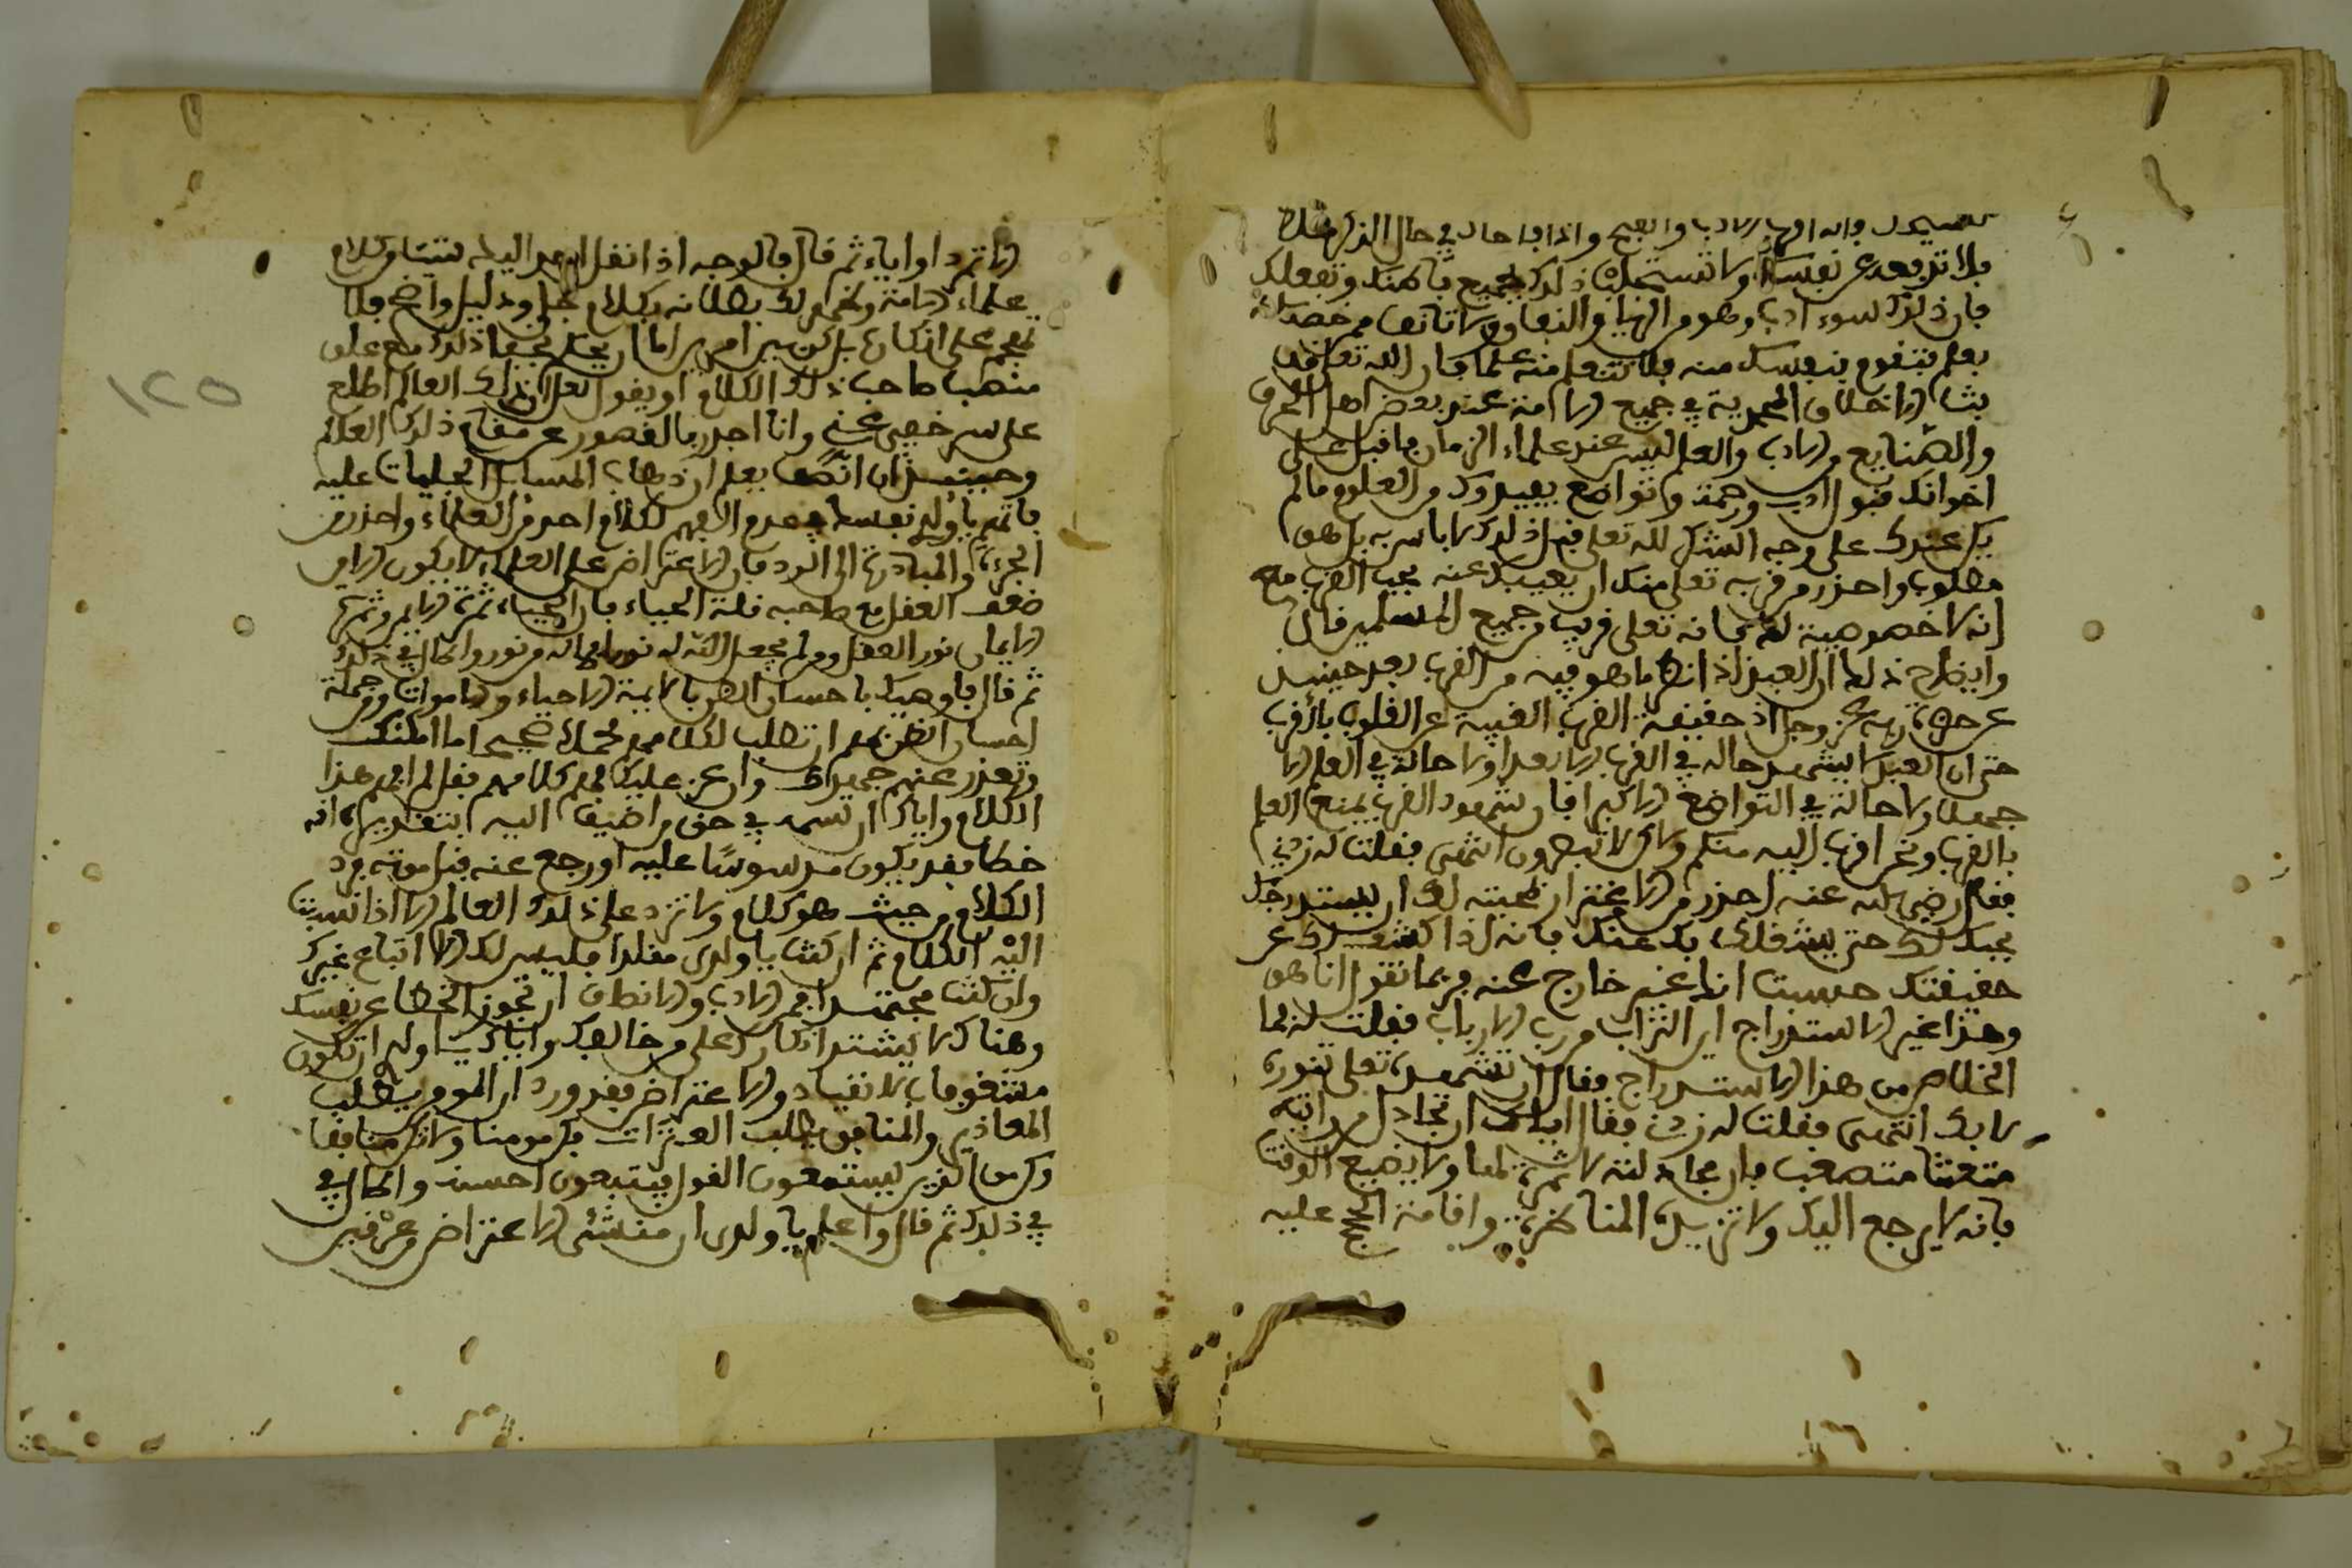 فلا ترفعه عن نفسك ولا تستجلب ذلك لجميع باطنك وتفعلك
فإن ذلك سوء ادب وهو من الريا والنفاق ولا تانف ممن خصه الله
بعلم فتقوم بنفسك منه فلا تتعلم منه علما فإن الله تعالى قد
بث الاخلاق المحمدية في جميع الامة عند بعض اهل الحرف
والصنايع من الادب والعلم ليس عند علماء الزمان فاقبل على
اخوانك قبول ادب ورحمة وتواضع يفيدوك من العلوم ما لم
يكن عندك على وجه الشكر لله تعالى فمثل ذلك لا باس به بل هو
مطلوب واحذر من قربه تعالى منك ان يغيبك عنه عجب القرب مع
انه لا خصوصية لك فانه تعالى قريب من جميع المسلمين قال
وايضاح ذلك ان العبد اذا نظر ما هو فيه من القرب بعد حينئذ
عن حضرة ربه عز وجل اذ حقيقة القرب الغيبة عن القلوب بالقرب
حتى ان العبد لا يشهد حاله في القرب الا بعدا ولا حالة في العلم الا
جهلا ولا حالة في التواضع الا كبرا فان شهود القرب يمنع العلم
بالقرب ونحن اقرب اليه منكم ولكن لا تبصرون انتهى فقلت له زدني
فقال رضي الله عنه احذر من الاغترار لمحبته لك ان يستدرجك
بحبك له حتى يشغلك بك عنك فانه اذا كشف لك عن
حقيقتك حسبت انك غير خارج عنه فربما تقول انا هو
وهذا غير الاستدراج اين التراب من رب الارباب فقلت له فما
الخلاص من هذا الاستدراج فقال ان تشهده تعالى بنوره
لا بك انتهى فقلت له زدني فقال اياك ان تجادل من رايته
متعنتا متصعبا فان مجادلته لا ثمرة لها ولا يضيع الوقت
فانه لا يرجع اليك ولا تزيده المناظرة واقامة الحجج عليه
الا تمردا واباء ثم قال فالوجه اذا نقل احد اليك شيئا من كلام
علماء الامة وظهر لك بطلانه بكلام جلي ودليل واضح فلا
تهجم على انكاره بل كن بين امرين اما ان تحمل خفا ذلك مع علو
منصب صاحب ذلك الكلام او يقول لعل ذلك العالم اطلع
على سر خفي عني وانا اجدر بالقصور عن مقام ذلك العالم
وحينئذ ان انكر فعلم ان ذهاب المسائل الجليات عليه
فاتهم يا ولدي نفسك بعدم الفهم لكلام احد من العلماء واحذر من
الجرءة والمبادرة الى الرد فان الاعتراض على العلماء لا يكون الا من
ضعف العقل مع صاحبه قلة الحياء فان الحياء ثمرة الايمان وثمرة
الايمان نور العقل ومن لم يجعل الله له نورا فما له من نور واطال في ذلك
ثم قال فاوصيك باحسان الظن بالايمة الاحياء والاموات ومن جملة
احسان الظن بهم ان تطلب لكلامهم محملا صحيحا ما امكنك
وتعذر عنهم جهدك وان عز عليك فهم كلامهم فقل لم افهم هذا
الكلام واياك ان تسعى في حق من اضيف اليه بتقدير انه
خطا فقد يكون مدسوسا عليه او رجع عنه قبل موته فرد
الكلام من حيث هو كلام ولا ترد على ذلك العالم الا اذا نسبت
اليه الكلام ثم ان كنت يا ولدي مقلدا فليس لك الا اتباع غيرك
وان كنت مجتهدا فمن الادب والانصاف ان تجوز الخطا عن نفسك
وهناك لا يشتد انكارك على من خالفك واياك يا ولدي ان تكون
مشغوفا بالانقياد والاعتراض فقد ورد ان المومن يطلب
المعاذير والمنافق يطلب العثرات فكن مومنا ولا تكن منافقا
وكن من الذين يستمعون القول فيتبعون احسنه واطال في
في ذلك ثم قال واعلم يا ولدي ان منشئ الاعتراض من غير فهم
١٢٥